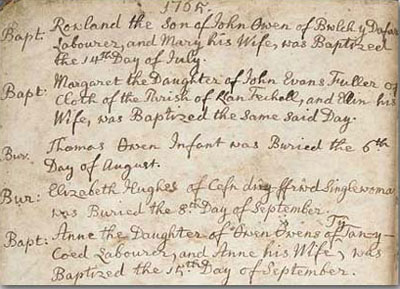 1765.
Bapt: Rowland the son of John Owen of Bwlch y Dafar
Labourer, and Mary his Wife, was Baptized
the 14th Day of July.
Bapt: Margaret the Daughter of John Evans Fuller of
Cloth of the Parish of Llan Fechell, and Ellin his
Wife, was Baptized the same said Day.
Bur: Thomas Owen Infant was Buried the 6th
Day of August.
Bur: Elizabeth Hughes of Cefn ffrwd Singlewoman
was Buried the 8th Day of September.
Bapt: Anne the Daughter of Owen Owens of Ty Tan-y-
Coed Labourer, and Anne his Wife, was
Baptized the 15th Day of September.